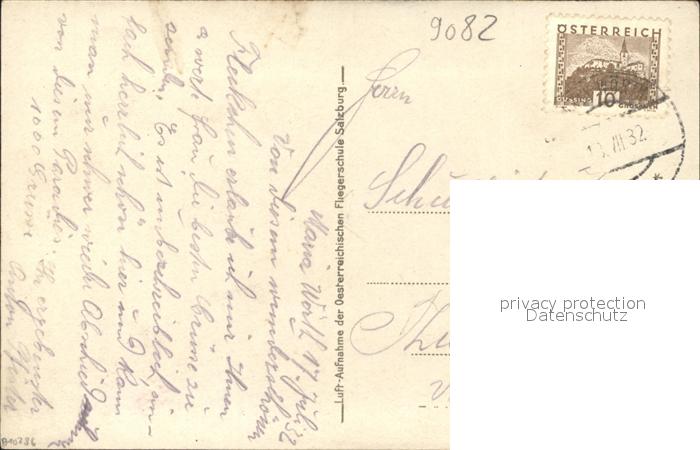 9082
ÖSTERREICH
GÜSSING
10
GROSCHEN
VII 32
Herrn
privacy protection
Datenschutz
Luft-Aufnahme der Oesterreichischen Fliegerschule Salzburg.
Maria Wörth 17. Juli 32
Von diesem wunderschönen
Fleckchen erlaube ich mir Ihnen
u. werte Frau die besten Grüsse zu
senden. Es ist unbeschreiblich ein-
fach herrlich schön hier und kann
man nur schwer wieder Abschied
von diesem Paradies.
1000 Grüsse
Ihr ergebenster
Anton
B10286